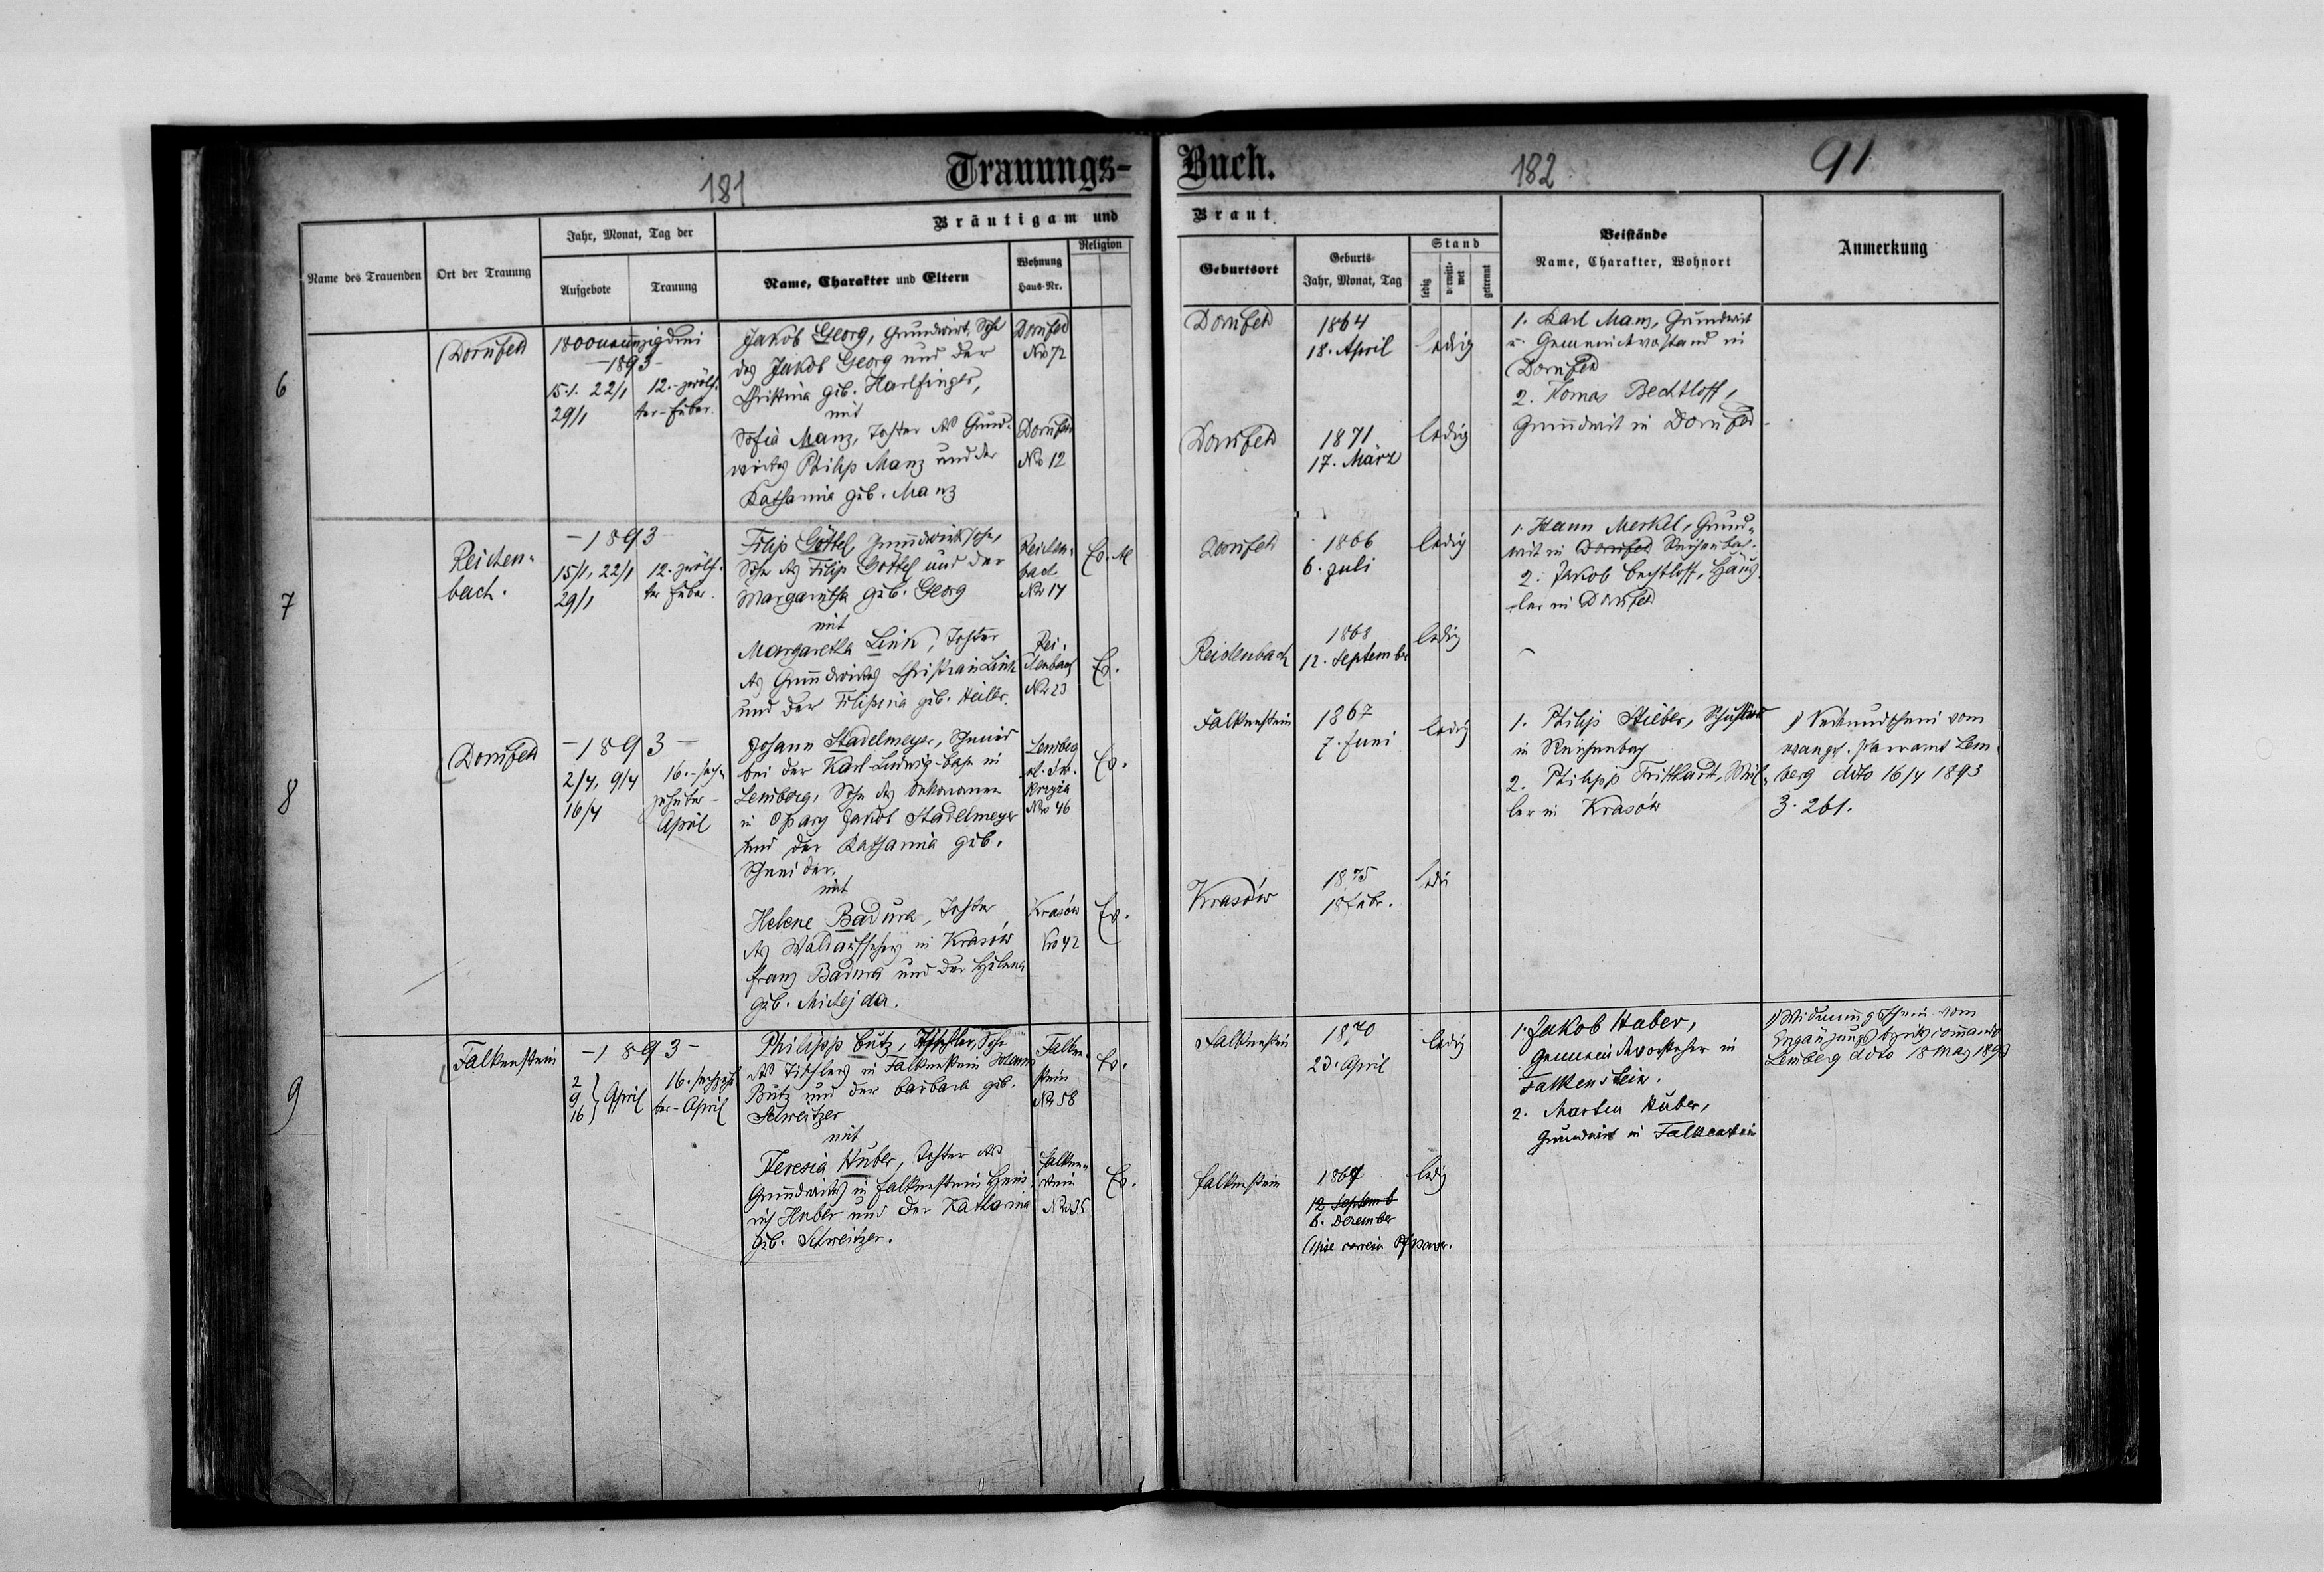 Trauungs-Buch.
181
182
91
Bräutigam und Braut
Name des Trauenden
Ort der Trauung
Jahr, Monat, Tag der
Aufgebote
Trauung
Name, Charakter und Eltern
Wohnung
Haus-Nr.
Religion
Geburtsort
Geburts-
Jahr, Monat, Tag
Stand
ledig
verwit-
wet
getrennt
Beistände
Name, Charakter, Wohnort
Anmerkung
6
Dornfeld
1893
15.1. 22/1
29/1
12.-zwölf-
ter-Feber.
Jakob Georg, Grundwirt, Sohn
des Jakob Georg und der
Christina geb. Harlfinger,
mit
Sofia Manz, Tochter des Grund-
wirtes Philip Manz und der
Katharina geb. Manz
Dornfeld
No 72
Dornfeld
No 12
Dornfeld
1864
18. April
ledig
Dornfeld
1871
17. März
ledig
1. Karl Manz, Grundwirt
u. Gemeindevorstand in
Dornfeld
2. Tomas Bechtloff,
Grundwirt in Dornfeld
7
Reichen-
bach.
-1893-
15/1, 22/1
29/1
12.-zwölf-
ter Feber.
Filip Göttel, Grundwirtssohn,
Sohn des Filip Göttel und der
Margaretha geb. Georg
mit
Margaretha Link, Tochter
des Grundwirtes Christian Link
und der Filipina geb.
Reichen-
bach
No 17
Ev.
Rei-
chenbach
No 23
Ev.
Dornfeld
1866
6. Juli
ledig
Reichenbach
1868
12. September
ledig
1. Merkel, Grund-
wirt in Dornfeld Reichenbach
2. Jakob Bechtloff, Häus-
ler in Dornfeld
8
Dornfeld
-1893-
2/4, 9/4
16/4
16.-sech-
zehnter-
April
Johann Stadelmeyer, Schmied
bei der Karl-Ludwig-Bahn in
Lemberg, Sohn des Oekonomen
in Opary Jakob Stadelmeyer
und der Katharina geb.
Schneider,
mit
Helene Badura, Tochter
des Waldaufsehers in Krasów
Franz Badura und der Helena
geb. Michejda.
Lemberg
No 46
Ev.
Krasów
No 42
Ev.
Falkenstein
1867
7. Juni
ledig
Krasów
1875
18 Febr.
1. Philip Stieber, Schuster
in Reichenbach
2. Philipp
ler in Krasów
1) Verkündschein vom
evangel. Pfarramt Lem-
berg ddto 16/4 1893
Z. 261.
9
Falkenstein
-1893-
2
9
16
April
16. sechzehn-
ter-April
Philipp Butz, Tischler, Sohn
des Tischlers in Falkenstein
Butz und der Barbara geb.
Schweitzer
mit
Teresia Huber, Tochter des
Grundwirtes in Falkenstein Hein-
rich Huber und der Katharina
geb. Schweitzer.
Falken-
stein
No 58
Ev.
Falken-
stein
No 35
Ev.
Falkenstein
1870
23. April
ledig
Falkenstein
1867
12 Septemb
6. Dezember
ledig
1. Jakob Huber,
Gemeindevorsteher in
Falkenstein.
2. Martin Huber,
Grundwirt in Falkenstein
1) Widmungsschein vom
Ergänzungsbezirkscommando
Lemberg ddto 18 März 1893